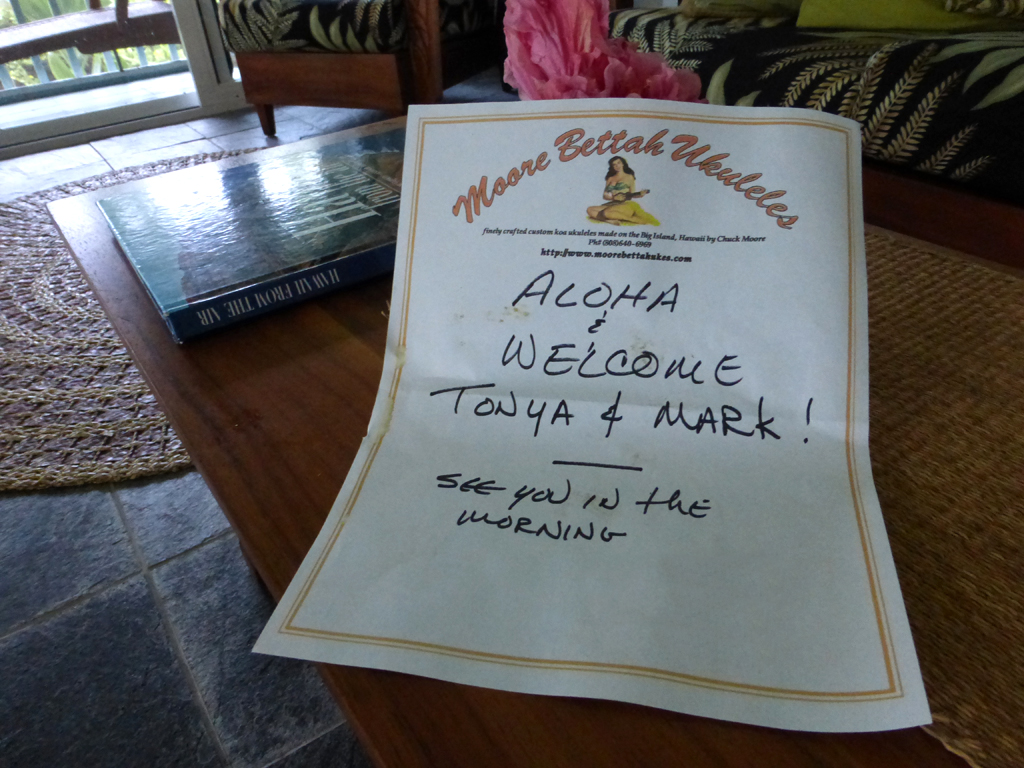 Moore Bettah Ukuleles
finely crafted custom koa ukuleles made on the Big Island, Hawaii by Chuck Moore
Ph# (808)640-6969
http://www.moorebettahukes.com
ALOHA
&
WELCOME
TONYA & MARK!
SEE YOU IN the
MORNING
HAWAII FROM THE AIR